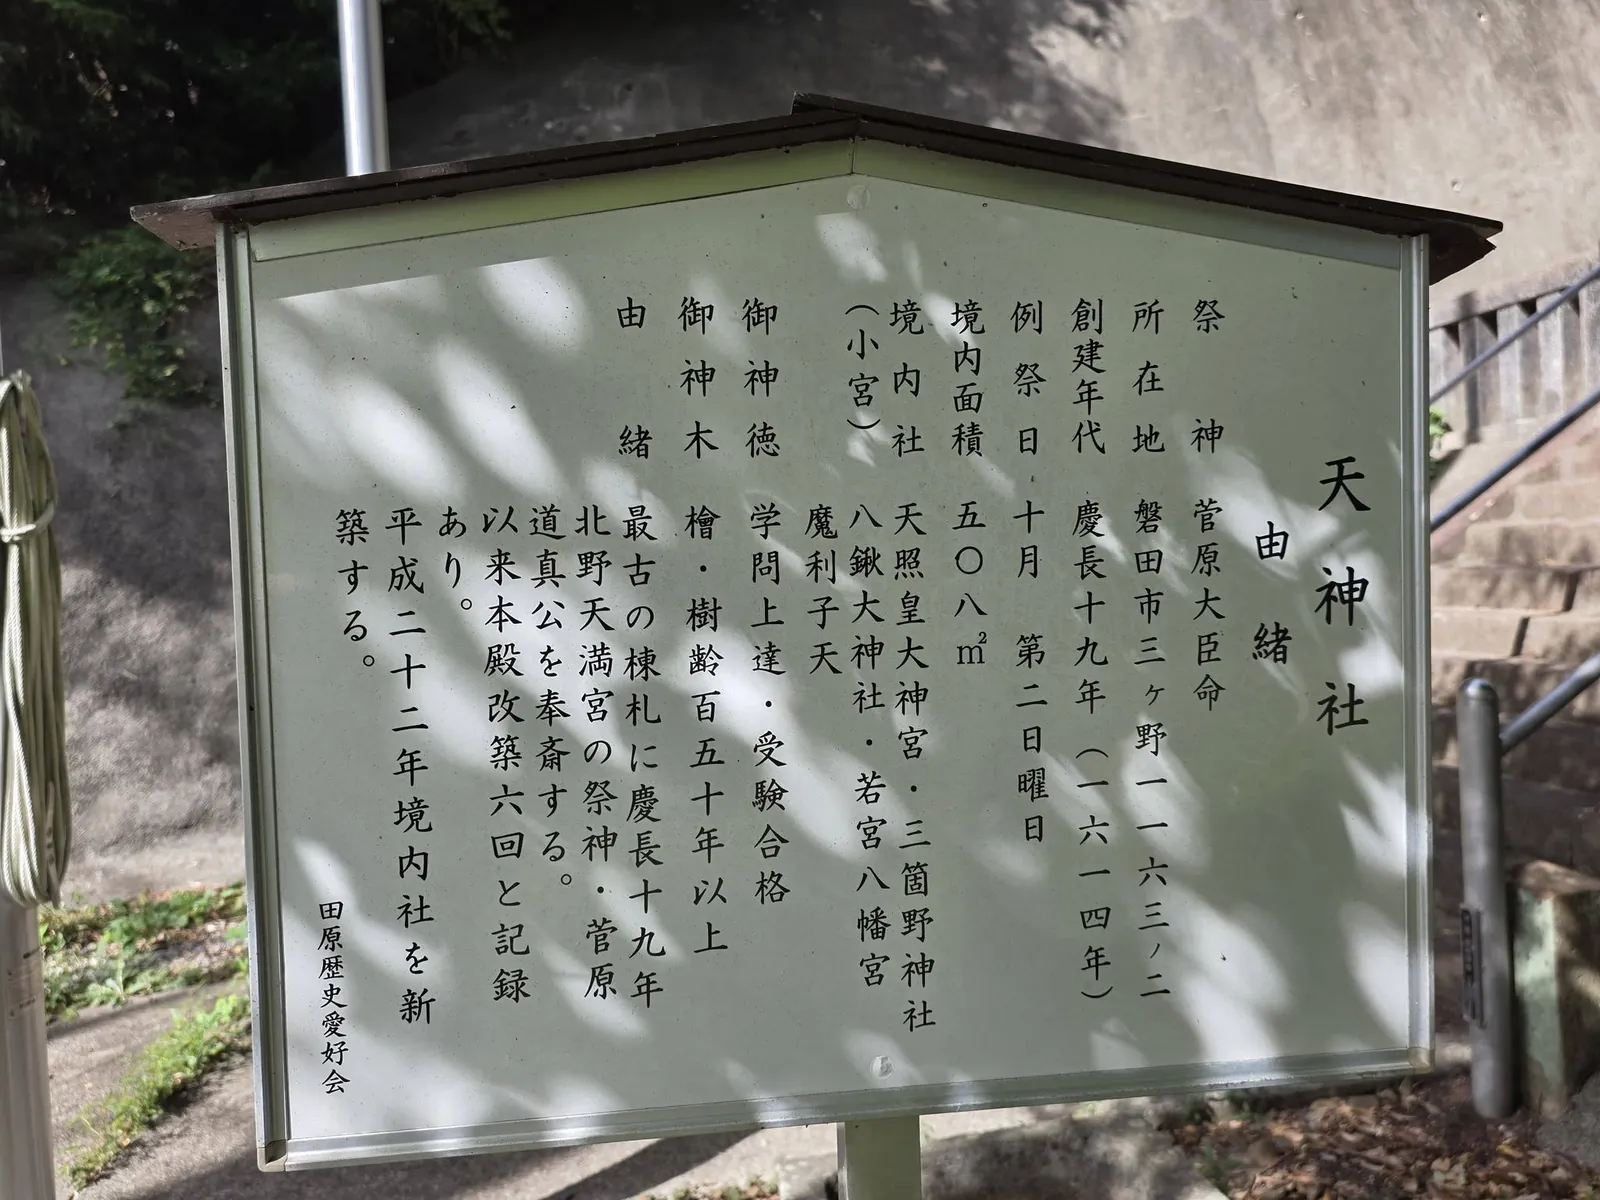 天神社
由緒
祭神 菅原大臣命
所在地 磐田市三ヶ野一一六三ノ二
創建年代 慶長十九年（一六一四年）
例祭日 十月 第二日曜日
境内面積 五〇八㎡
境内社 天照皇大神宮・三箇野神社
（小宮） 八鍬大神社・若宮八幡宮
魔利子天
御神徳 学問上達・受験合格
御神木 檜・樹齢百五十年以上
由緒 最古の棟札に慶長十九年
北野天満宮の祭神・菅原
道真公を奉斎する。
以来本殿改築六回と記録
あり。
平成二十二年境内社を新
築する。
田原歴史愛好会